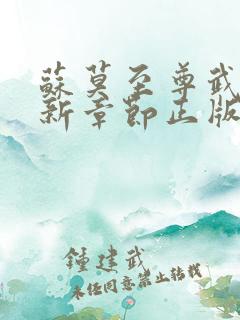 蘇莫至尊武
新章節正版
鍾建武
未經同意禁止轉載